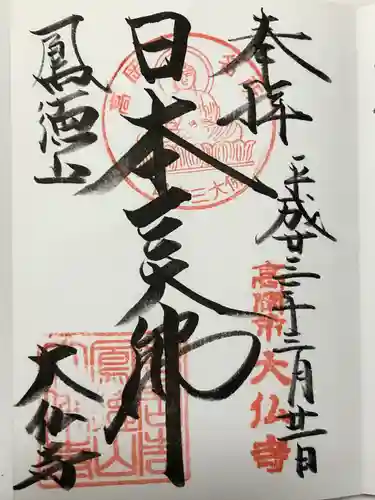 奉拝
平成廿三年三月廿一日
高岡市大仏寺
日本三大佛
鳳徳山
大仏寺